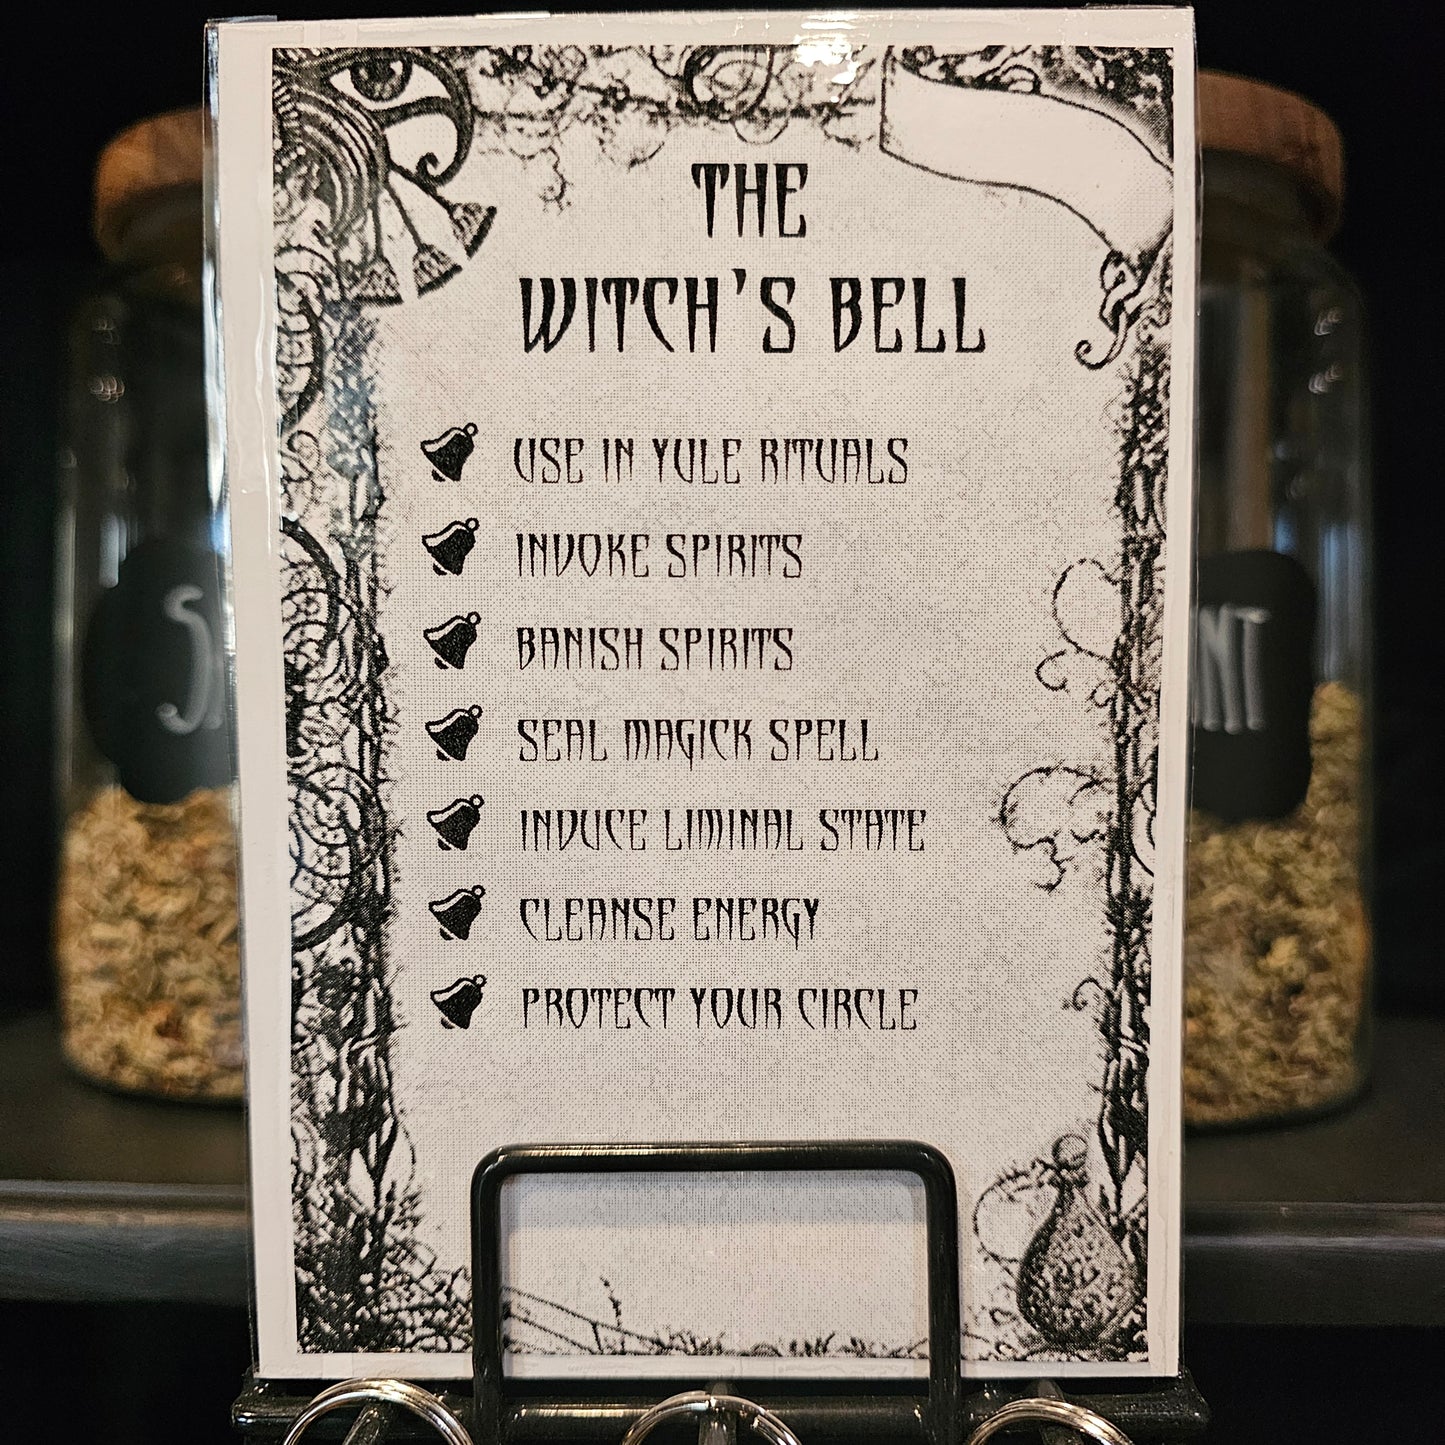 THE
WITCH'S BELL
USE IN YULE RITUALS
INVOKE SPIRITS
BANISH SPIRITS
SEAL MAGICK SPELL
INDUCE LIMINAL STATE
CLEANSE ENERGY
PROTECT YOUR CIRCLE